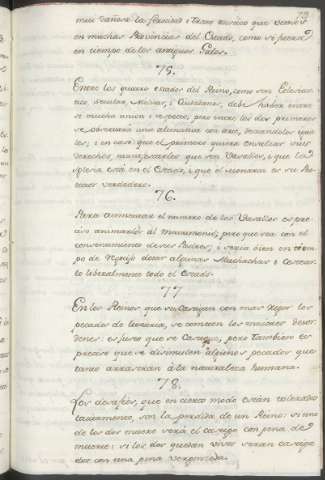 muy dañosa la
en muchas Provincias del Estado, como se
en tiempo de los antiguos Galos.
75.
Entre los quatro estados del Reino, como son Eclesias-
tico, secular, Militar, i Ciudadano, debe haber entre
si mucha union i respeto, pero entre los dos primeros
se observará una alternativa con arte, haciendolos igua
les; i en caso que el primero quiera ensalzar sus
derechos, manifestarles que son Vasallos, i que la
Iglesia está en el Estado, i que el Monarca es su Pro-
tector verdadero.
76.
Para aumentar el numero de los Vasallos es pre-
ciso animarlos al Matrimonio, pero que sea con el
consentimiento de sus Padres; i sería bien en tiem-
po de dotar algunas Muchachas i
lo liberalmente todo el Estado.
77
En los Reinos que se castigan con mas rigor los
pecados de luxuria, se cometen los maiores desor-
denes: es justo que se castigue, pero tambien es
preciso que se disimulen algunos pecados que
tanto arrastran á la naturaleza humana.
78.
Los desafios, que en cierto modo están tolerados
tacitamente, son la perdida de un Reino: si uno
de los dos muere será el castigo con pena de
muerte: si los dos quedan vivos serán castiga
dos con una pena vergonzosa.